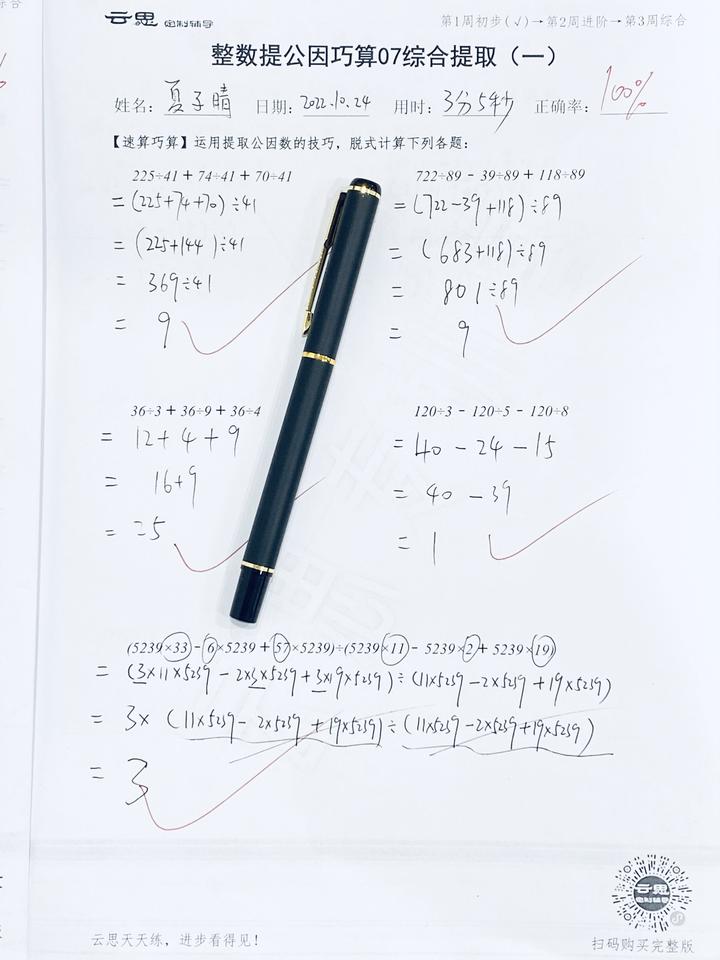 云思 定制辅导
第1周初步(√)→第2周进阶→第3周综合
整数提公因巧算07综合提取（一）
姓名：夏子晴 日期：2022.10.24 用时：3分54秒 正确率：100%
【速算巧算】运用提取公因数的技巧，脱式计算下列各题：
225÷41 + 74÷41 + 70÷41
=(225+74+70)÷41
=(225+144)÷41
= 369÷41
= 9
722÷89 - 39÷89 + 118÷89
=(722-39+118)÷89
= (683+118)÷89
= 801÷89
= 9
36÷3 + 36÷9 + 36÷4
= 12+4+9
= 16+9
= 25
120÷3 - 120÷5 - 120÷8
=40-24-15
= 40-39
= 1
(5239×33-6×5239+57×5239)÷(5239×11-5239×2+5239×19)
= (3×11×5239-2×3×5239+3×19×5239)÷(11×5239-2×5239+19×5239)
= 3×(11×5239-2×5239+19×5239)÷(11×5239-2×5239+19×5239)
= 3
云思
定制辅导
云思天天练，进步看得见！
扫码购买完整版